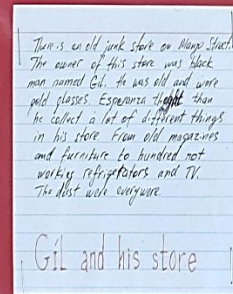 There is an old junk store on Mango Street.
The owner of this store was black
man named Gil. He was old and wore
gold glasses. Esperanza thoght than
he collect a lot of different things
in his store From old magazines
and furniture to hundred not
working refrigerators and TV.
The dust were everywere.
Gil and his store